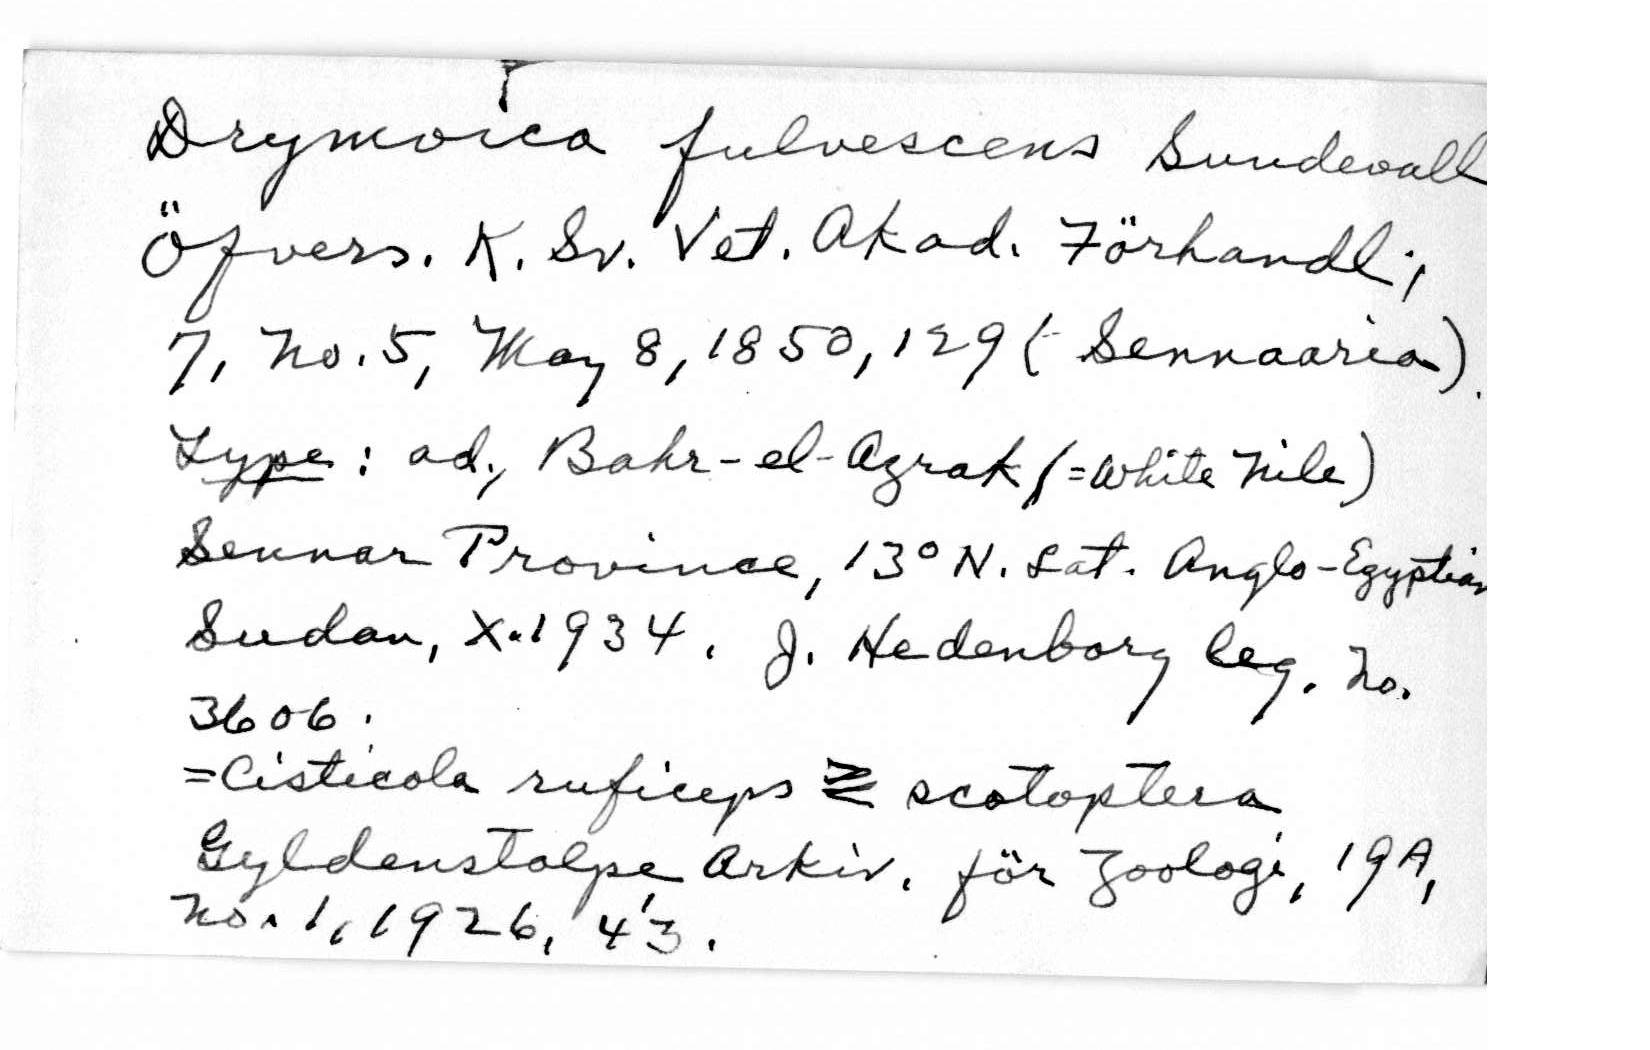 Drymoica fulvescens Sundevall
Öfvers. K. Sv. Vet. Akad. Förhandl.,
7, No. 5, May 8, 1850, 129 (- Sennaaria).
Type: ad., Bahr-el-Azrak (=White Nile)
Sennar Province, 13° N. Lat. Anglo-Egyptian
Sudan, X.1934. J. Hedenborg leg. No.
3606.
=Cisticola ruficeps scotoptera
Gyldenstolpe Arkiv. för Zoologi, 19A,
No. 1, 1926, 43.